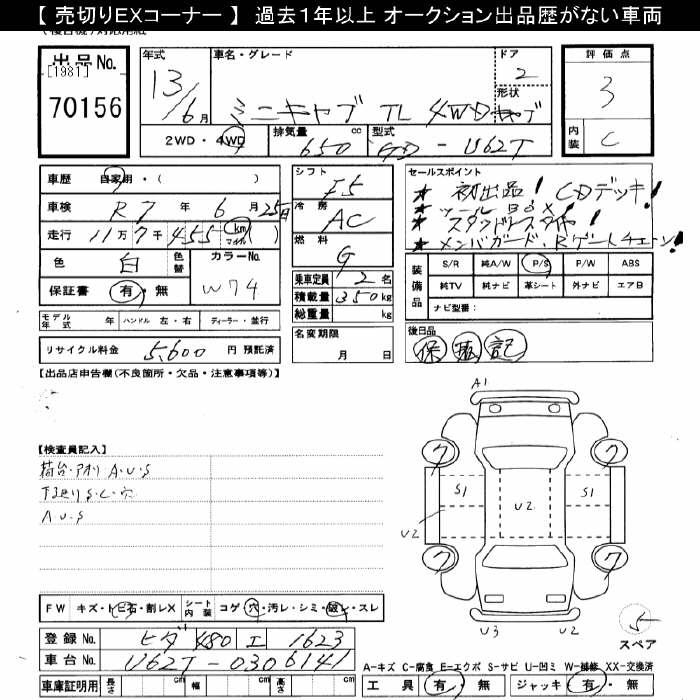 【 売切りEXコーナー 】 過去１年以上 オークション出品歴がない車両
出品No.
[1981]
70156
年式
13/6月
車名・グレード
ミニキャブ TL 4WD
ドア
2
形状
キャブ
評価点
3
内装
C
2WD・4WD
排気量
650 cc
型式
GD-U62T
車歴 自家用・( )
車検 R7年 6月 25日
走行 11万7千455 (km マイル)
色 白 色替
カラーNo.
W74
保証書 有・無
モデル年式 年 ハンドル 左・右 ディーラー・並行
リサイクル料金 5,600 円 預託済
シフト
F5
冷房
AC
燃料
G
乗車定員 2 名
積載量 350 kg
総重量 kg
名変期限
月 日
セールスポイント
★ 初出品! CDデッキ!
★ ツールBOX!
★ スタッドレスタイヤ!
★ メンバガード、Rゲートチェーン!
装備品
S/R 純A/W P/S P/W ABS
純TV 純ナビ 革シート 外ナビ エアB
ナビ型番:
後日品
保 取 記
【出品店申告欄(不良箇所・欠品・注意事項等)】
【検査員記入】
荷台・アオリ A・U・S
下廻り S・C・穴
A U・S
A1
ワ ワ
S1 U2 S1
U2
ワ ワ
U3 U2
5
スペア
FW キズ・トビ石・割レX シート内装 コゲ・穴・汚レ・シミ・破レ・スレ
登録No. ヒダ 480 エ 1623
車台No. U62T-0306141
車庫証明用 長さ cm 幅 cm 高さ cm
A-キズ C-腐食 E-エクボ S-サビ U-凹ミ W-補修 XX-交換済
工具 有・無 ジャッキ 有・無